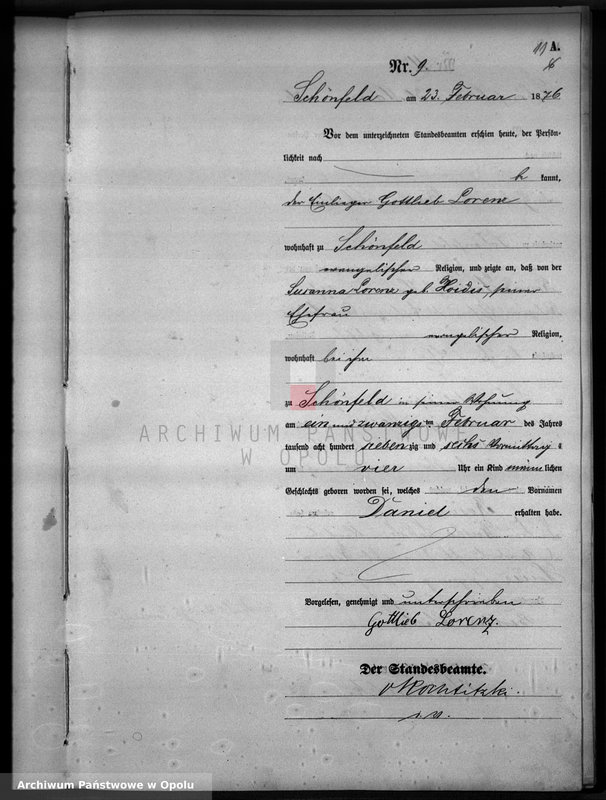 A.
Nr. 9.
Schönfeld am 23. Februar 1876
Vor dem unterzeichneten Standesbeamten erschien heute, der Persön-
lichkeit nach
kannt,
der Einlieger Gottlieb Lorenz
wohnhaft zu Schönfeld
evangelischer Religion, und zeigte an, daß von der
Susanna Lorenz geb. seiner
Ehefrau
evangelischer Religion,
wohnhaft bei ihm
zu Schönfeld in seiner Wohnung
am ein und zwanzigsten Februar des Jahres
tausend acht hundert siebenzig und sechs Vormittags
um vier Uhr ein Kind männlichen
Geschlechts geboren worden sei, welches den Vornamen
Daniel erhalten habe.
Vorgelesen, genehmigt und unterschrieben
Gottlieb Lorenz.
Der Standesbeamte.
ARCHIWUM PAŃSTWOWE
W OPOLU
Archiwum Państwowe w Opolu